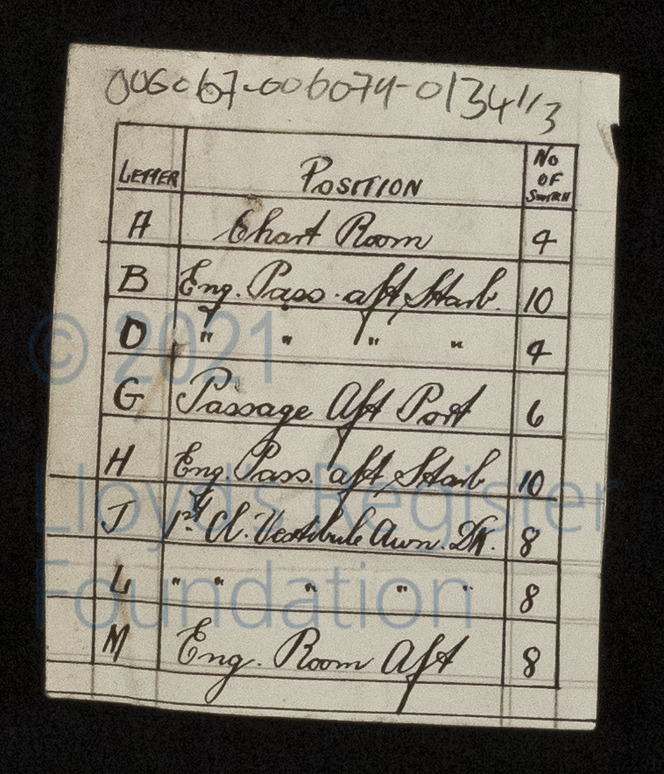 006067-006074-0134 1/3
LETTER POSITION No OF SWITCH
A Chart Room 4
B Eng. Pass. aft, Starb. 10
D " " " " 4
G Passage Aft Port 6
H Eng. Pass. aft, Starb. 10
J 1st Cl. Vestibule Awn. Dk. 8
L " " " " " 8
M Eng. Room Aft 8
© 2021
Lloyd's Register
Foundation